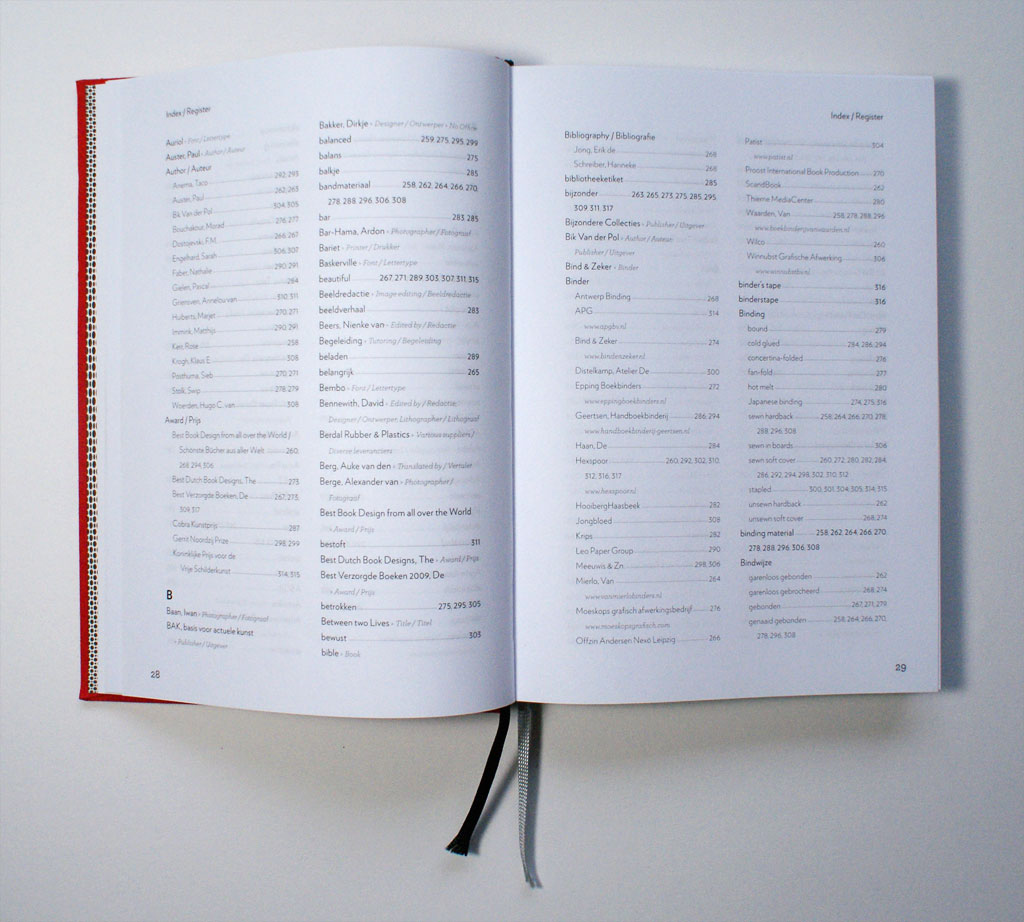 Index / Register
Auriol • Font / Lettertype
Auster, Paul • Author / Auteur
Author / Auteur
Anema, Taco 292, 293
Auster, Paul 262, 263
Bik Van der Pol 304, 305
Bouchakour, Morad 276, 277
Dostojevski, F.M. 266, 267
Engelhard, Sarah 306, 307
Faber, Nathalie 290, 291
Gielen, Pascal 264
Griensven, Annelou van 310, 311
Huberts, Marjet 270, 271
Immink, Matthijs 290, 291
Kerr, Rose 258
Krogh, Klaus E. 308
Posthuma, Sieb 270, 271
Stolk, Swip 278, 279
Woerden, Hugo C. van 308
Award / Prijs
Best Book Design from all over the World /
Schönste Bücher aus aller Welt 260,
268, 294, 306
Best Dutch Book Designs, The 273
Best Verzorgde Boeken, De 267, 273,
309, 317
Cobra Kunstprijs 287
Gerrit Noordzij Prize 298, 299
Koninklijke Prijs voor de
Vrije Schilderkunst 314, 315
B
Baan, Iwan • Photographer / Fotograaf
BAK, basis voor actuele kunst
• Publisher / Uitgever
28
Bakker, Dirkje • Designer / Ontwerper • No Office
balanced 259, 275, 295, 299
balans 275
balkje 285
bandmateriaal 258, 262, 264, 266, 270,
278, 288, 296, 306, 308
bar 283, 285
Bar-Hama, Ardon • Photographer / Fotograaf
Bariet • Printer / Drukker
Baskerville • Font / Lettertype
beautiful 267, 271, 289, 303, 307, 311, 315
Beeldredactie • Image editing / Beeldredactie
beeldverhaal 283
Beers, Nienke van • Edited by / Redactie
Begeleiding • Tutoring / Begeleiding
beladen 289
belangrijk 265
Bembo • Font / Lettertype
Bennewith, David • Edited by / Redactie,
Designer / Ontwerper, Lithographer / Lithograaf
Berdal Rubber & Plastics • Various suppliers /
Diverse leveranciers
Berg, Auke van den • Translated by / Vertaler
Berge, Alexander van • Photographer /
Fotograaf
Best Book Design from all over the World
• Award / Prijs
bestoft 311
Best Dutch Book Designs, The • Award / Prijs
Best Verzorgde Boeken 2009, De
• Award / Prijs
betrokken 275, 295, 305
Between two Lives • Title / Titel
bewust 303
bible • Book
Index / Register
Bibliography / Bibliografie
Jong, Erik de 268
Schreiber, Hanneke 268
bibliotheeketiket 285
bijzonder 263, 265, 273, 275, 285, 295,
309, 311, 317
Bijzondere Collecties • Publisher / Uitgever
Bik Van der Pol • Author / Auteur,
Publisher / Uitgever
Bind & Zeker • Binder
Binder
Antwerp Binding 268
APG 314
www.apgbv.nl
Bind & Zeker 274
www.bindenzeker.nl
Distelkamp, Atelier De 300
Epping Boekbinders 272
www.eppingboekbinders.nl
Geertsen, Handboekbinderij 286, 294
www.handboekbinderij-geertsen.nl
Haan, De 284
Hexspoor 260, 292, 302, 310,
312, 316, 317
www.hexspoor.nl
HooibergHaasbeek 282
Jongbloed 308
Krips 282
Leo Paper Group 290
Meeuwis & Zn. 298, 306
Mierlo, Van 264
www.vanmierlobinders.nl
Moeskops grafisch afwerkingsbedrijf 276
www.moeskopsgrafisch.com
Offizin Andersen Nexö Leipzig 266
Patist 304
www.patist.nl
Proost International Book Production 270
ScandBook 262
Thieme MediaCenter 280
Waarden, Van 258, 278, 288, 296
www.boekbinderijvanwaarden.nl
Wilco 260
Winnubst Grafische Afwerking 306
www.winnubstbv.nl
binder's tape 316
binderstape 316
Binding
bound 279
cold glued 284, 286, 294
concertina-folded 276
fan-fold 277
hot melt 280
Japanese binding 274, 275, 316
sewn hardback 258, 264, 266, 270, 278,
288, 296, 308
sewn in boards 306
sewn soft cover 260, 272, 280, 282, 284,
286, 292, 294, 298, 302, 310, 312
stapled 300, 301, 304, 305, 314, 315
unsewn hardback 262
unsewn soft cover 268, 274
binding material 258, 262, 264, 266, 270,
278, 288, 296, 306, 308
Bindwijze
garenloos gebonden 262
garenloos gebrocheerd 268, 274
gebonden 267, 271, 279
genaaid gebonden 258, 264, 266, 270,
278, 296, 308
29